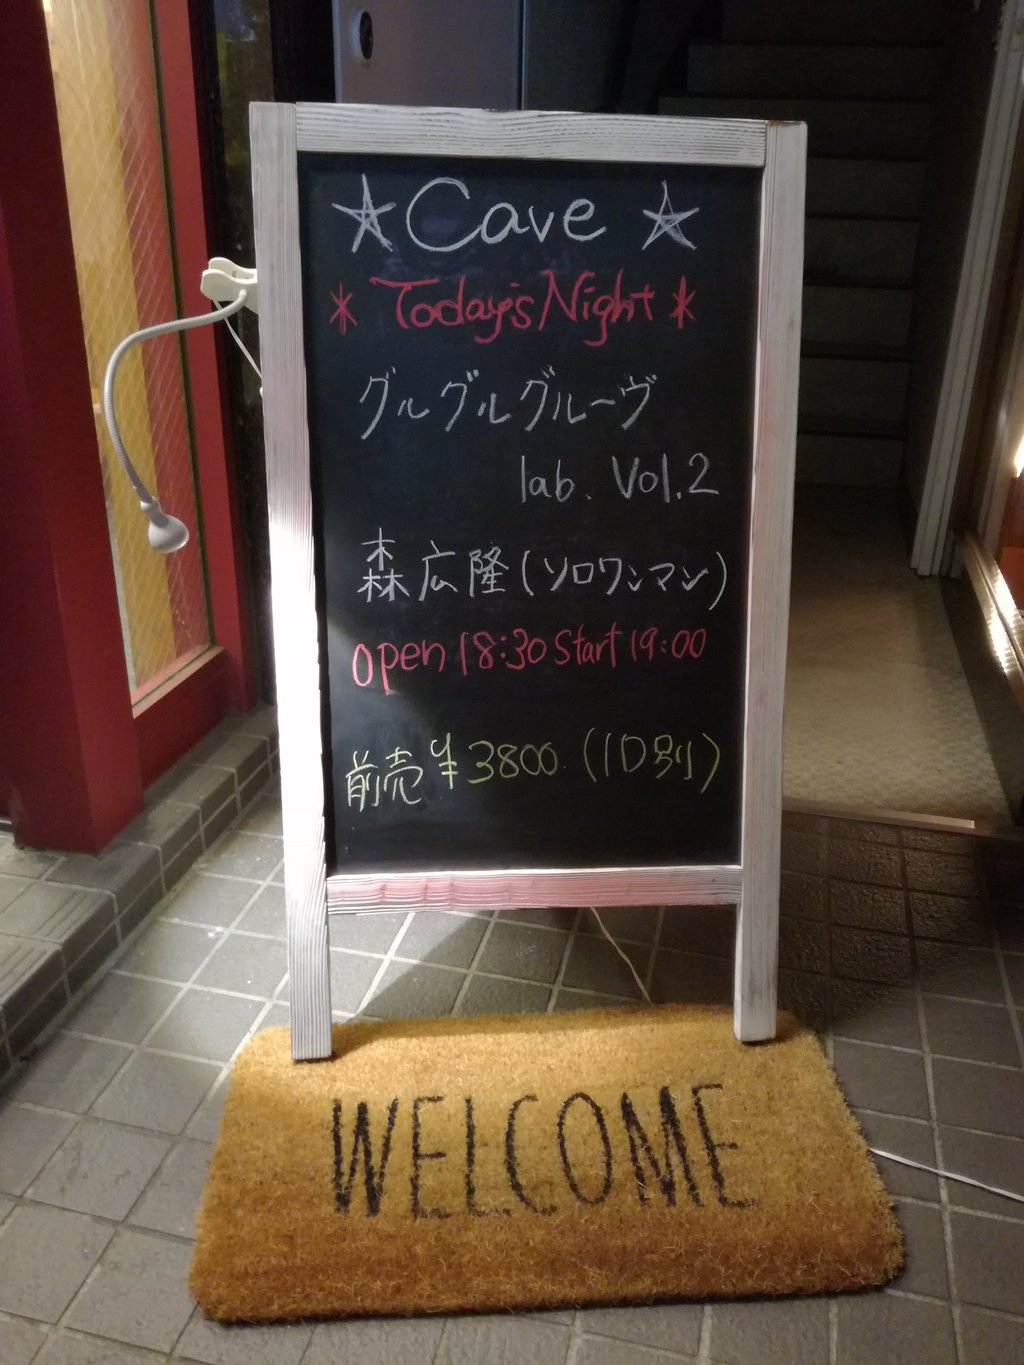 ★Cave★
*Today's Night*
グルグルグルーヴ
lab. Vol.2
森広隆(ソロワンマン)
open 18:30 start 19:00
前売¥3800 (1D別)
WELCOME